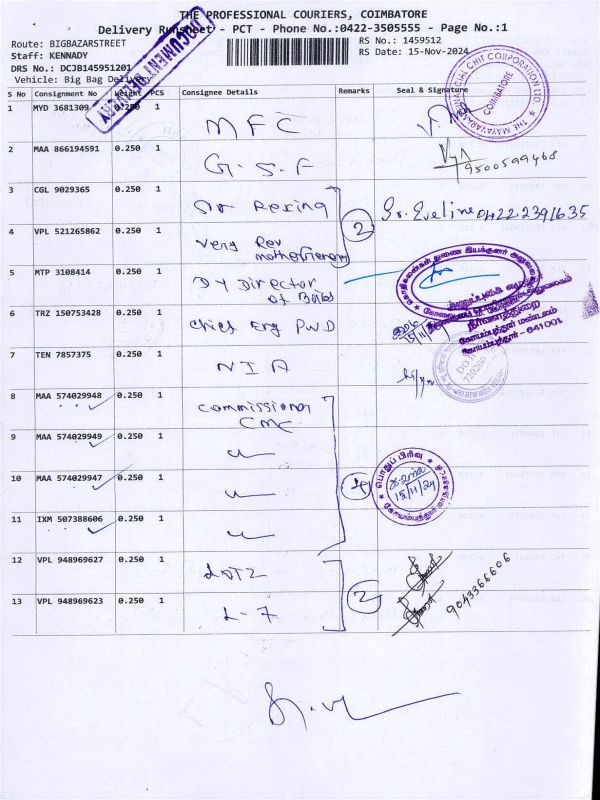 THE PROFESSIONAL COURIERS, COIMBATORE
Delivery Runsheet - PCT - Phone No.:0422-3505555 - Page No.:1
Route: BIGBAZARSTREET
RS No.: 1459512
Staff: KENNADY
RS Date: 15-Nov-2024
DRS No.: DCJB145951201
Vehicle: Big Bag Delivery
DOCUMENT DELIVERY
S No Consignment No Weight PCS Consignee Details Remarks Seal & Signature
THE MAYAVARAM FINANCIAL CHIT CORPORATION LTD.
COIMBATORE
1 MYD 3681309 0.250 1 MFC
2 MAA 866194591 0.250 1 G.S.F 9500599468
3 CGL 9029365 0.250 1 2 Sr. Eveline 0422 2391635
4 VPL 521265862 0.250 1 Very Rev
5 MTP 3108414 0.250 1 Dy Director
of
6 TRZ 150753428 0.250 1 Chief Eng PWD
கோயம்புத்தூர் மண்டலம்
கோயம்புத்தூர் - 641001
7 TEN 7857375 0.250 1 NIA
8 MAA 574029948 0.250 1 Commissioner
CMC
9 MAA 574029949 0.250 1 "
10 MAA 574029947 0.250 1 " 4
பொதுப் பிரிவு
15/11/24
11 IXM 507388606 0.250 1 "
12 VPL 948969627 0.250 1
13 VPL 948969623 0.250 1 L-7 2 9043366606